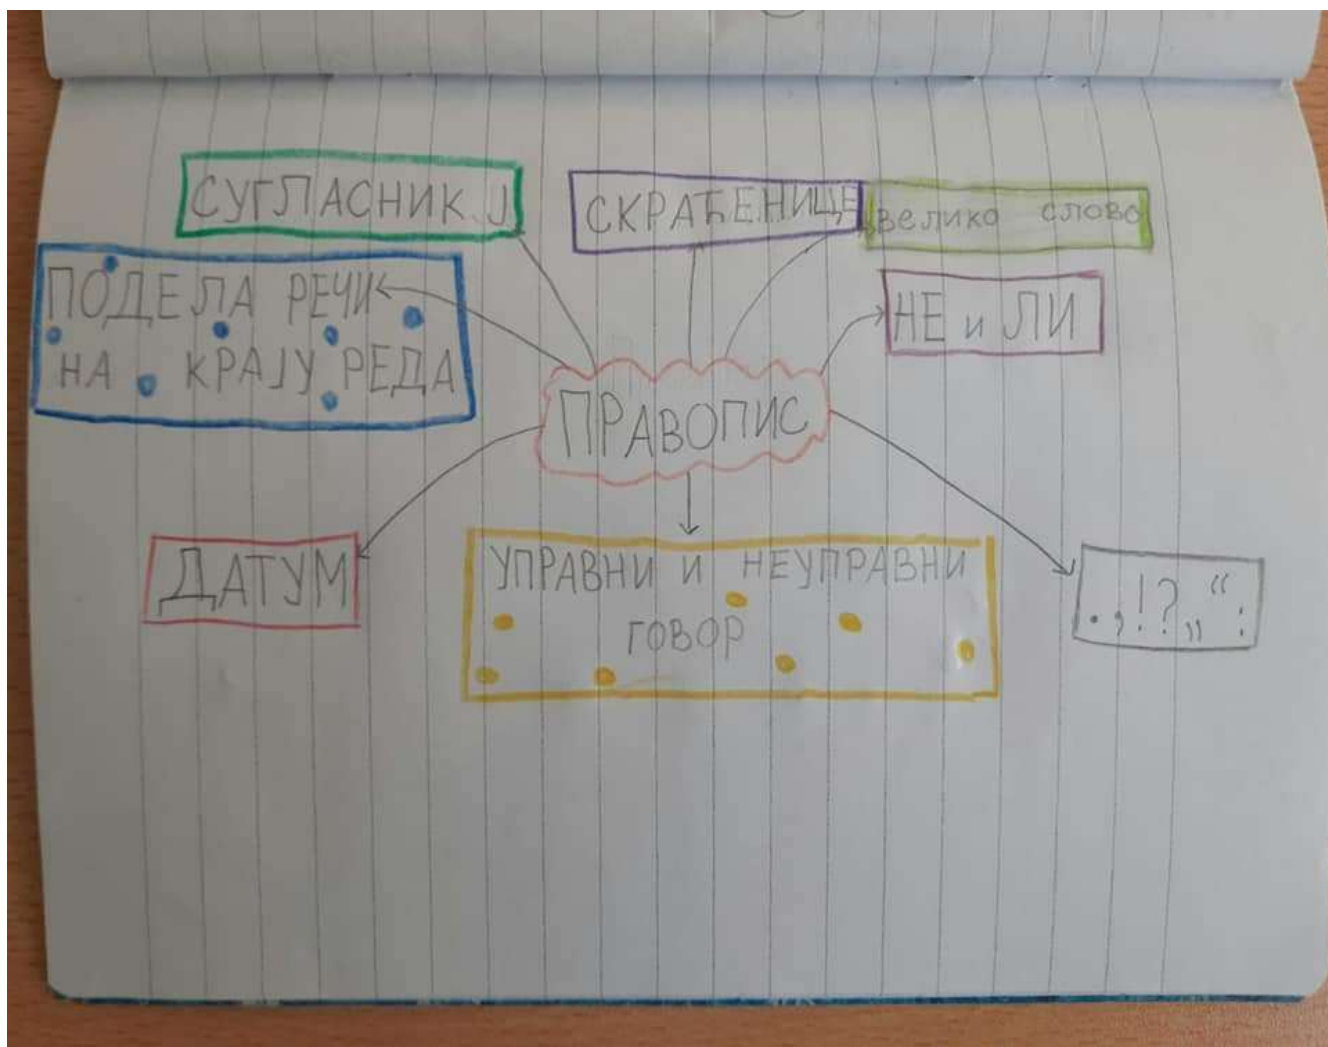 СУГЛАСНИК Ј
СКРАЋЕНИЦЕ
велико слово
ПОДЕЛА РЕЧИ
НА КРАЈУ РЕДА
НЕ и ЛИ
ПРАВОПИС
ДАТУМ
УПРАВНИ И НЕУПРАВНИ
ГОВОР
.,!?„“: